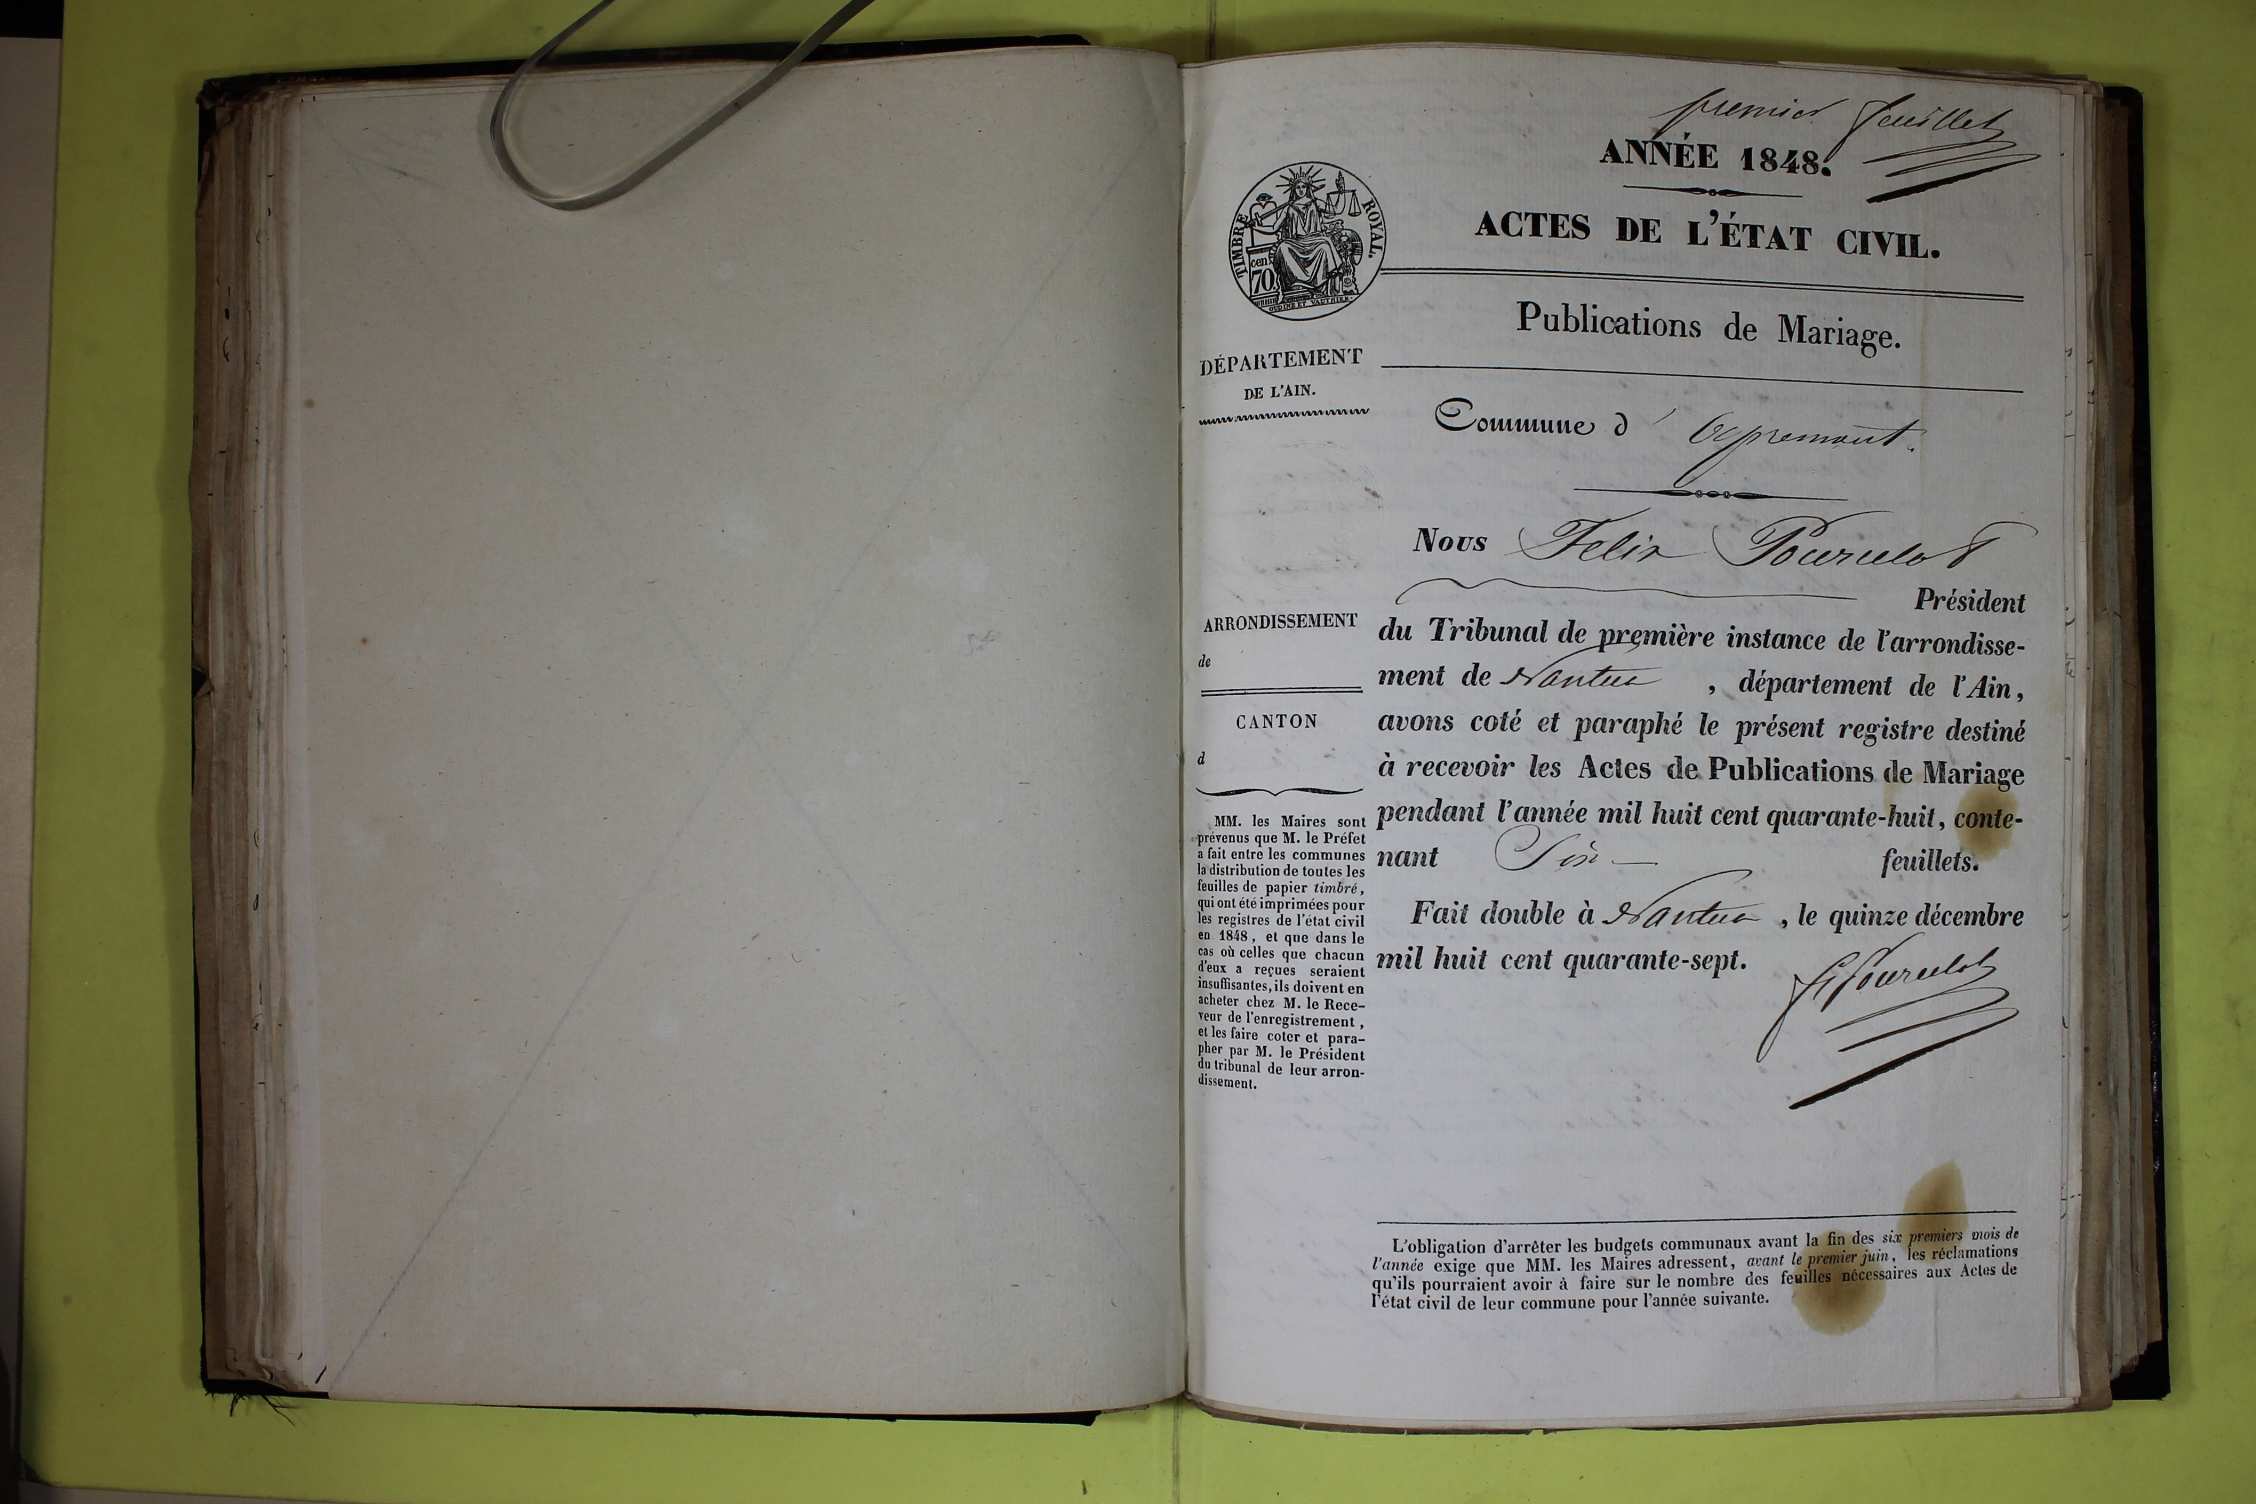 premier feuillet
ANNÉE 1848.
ACTES DE L'ÉTAT CIVIL.
TIMBRE ROYAL.
cen
70
Publications de Mariage.
DÉPARTEMENT
DE L'AIN.
Commune d' Apremont.
Nous Felix Pourcelot
Président
du Tribunal de première instance de l'arrondisse-
ment de Nantua , département de l'Ain,
avons coté et paraphé le présent registre destiné
à recevoir les Actes de Publications de Mariage
pendant l'année mil huit cent quarante-huit, conte-
nant Six feuillets.
Fait double à Nantua , le quinze décembre
mil huit cent quarante-sept.
F Pourcelot
ARRONDISSEMENT
de
CANTON
d
MM. les Maires sont
prévenus que M. le Préfet
a fait entre les communes
la distribution de toutes les
feuilles de papier timbré,
qui ont été imprimées pour
les registres de l'état civil
en 1848, et que dans le
cas où celles que chacun
d'eux a reçues seraient
insuffisantes, ils doivent en
acheter chez M. le Rece-
veur de l'enregistrement,
et les faire coter et para-
pher par M. le Président
du tribunal de leur arron-
dissement.
L'obligation d'arrêter les budgets communaux avant la fin des six premiers mois de
l'année exige que MM. les Maires adressent, avant le premier juin, les réclamations
qu'ils pourraient avoir à faire sur le nombre des feuilles nécessaires aux Actes de
l'état civil de leur commune pour l'année suivante.